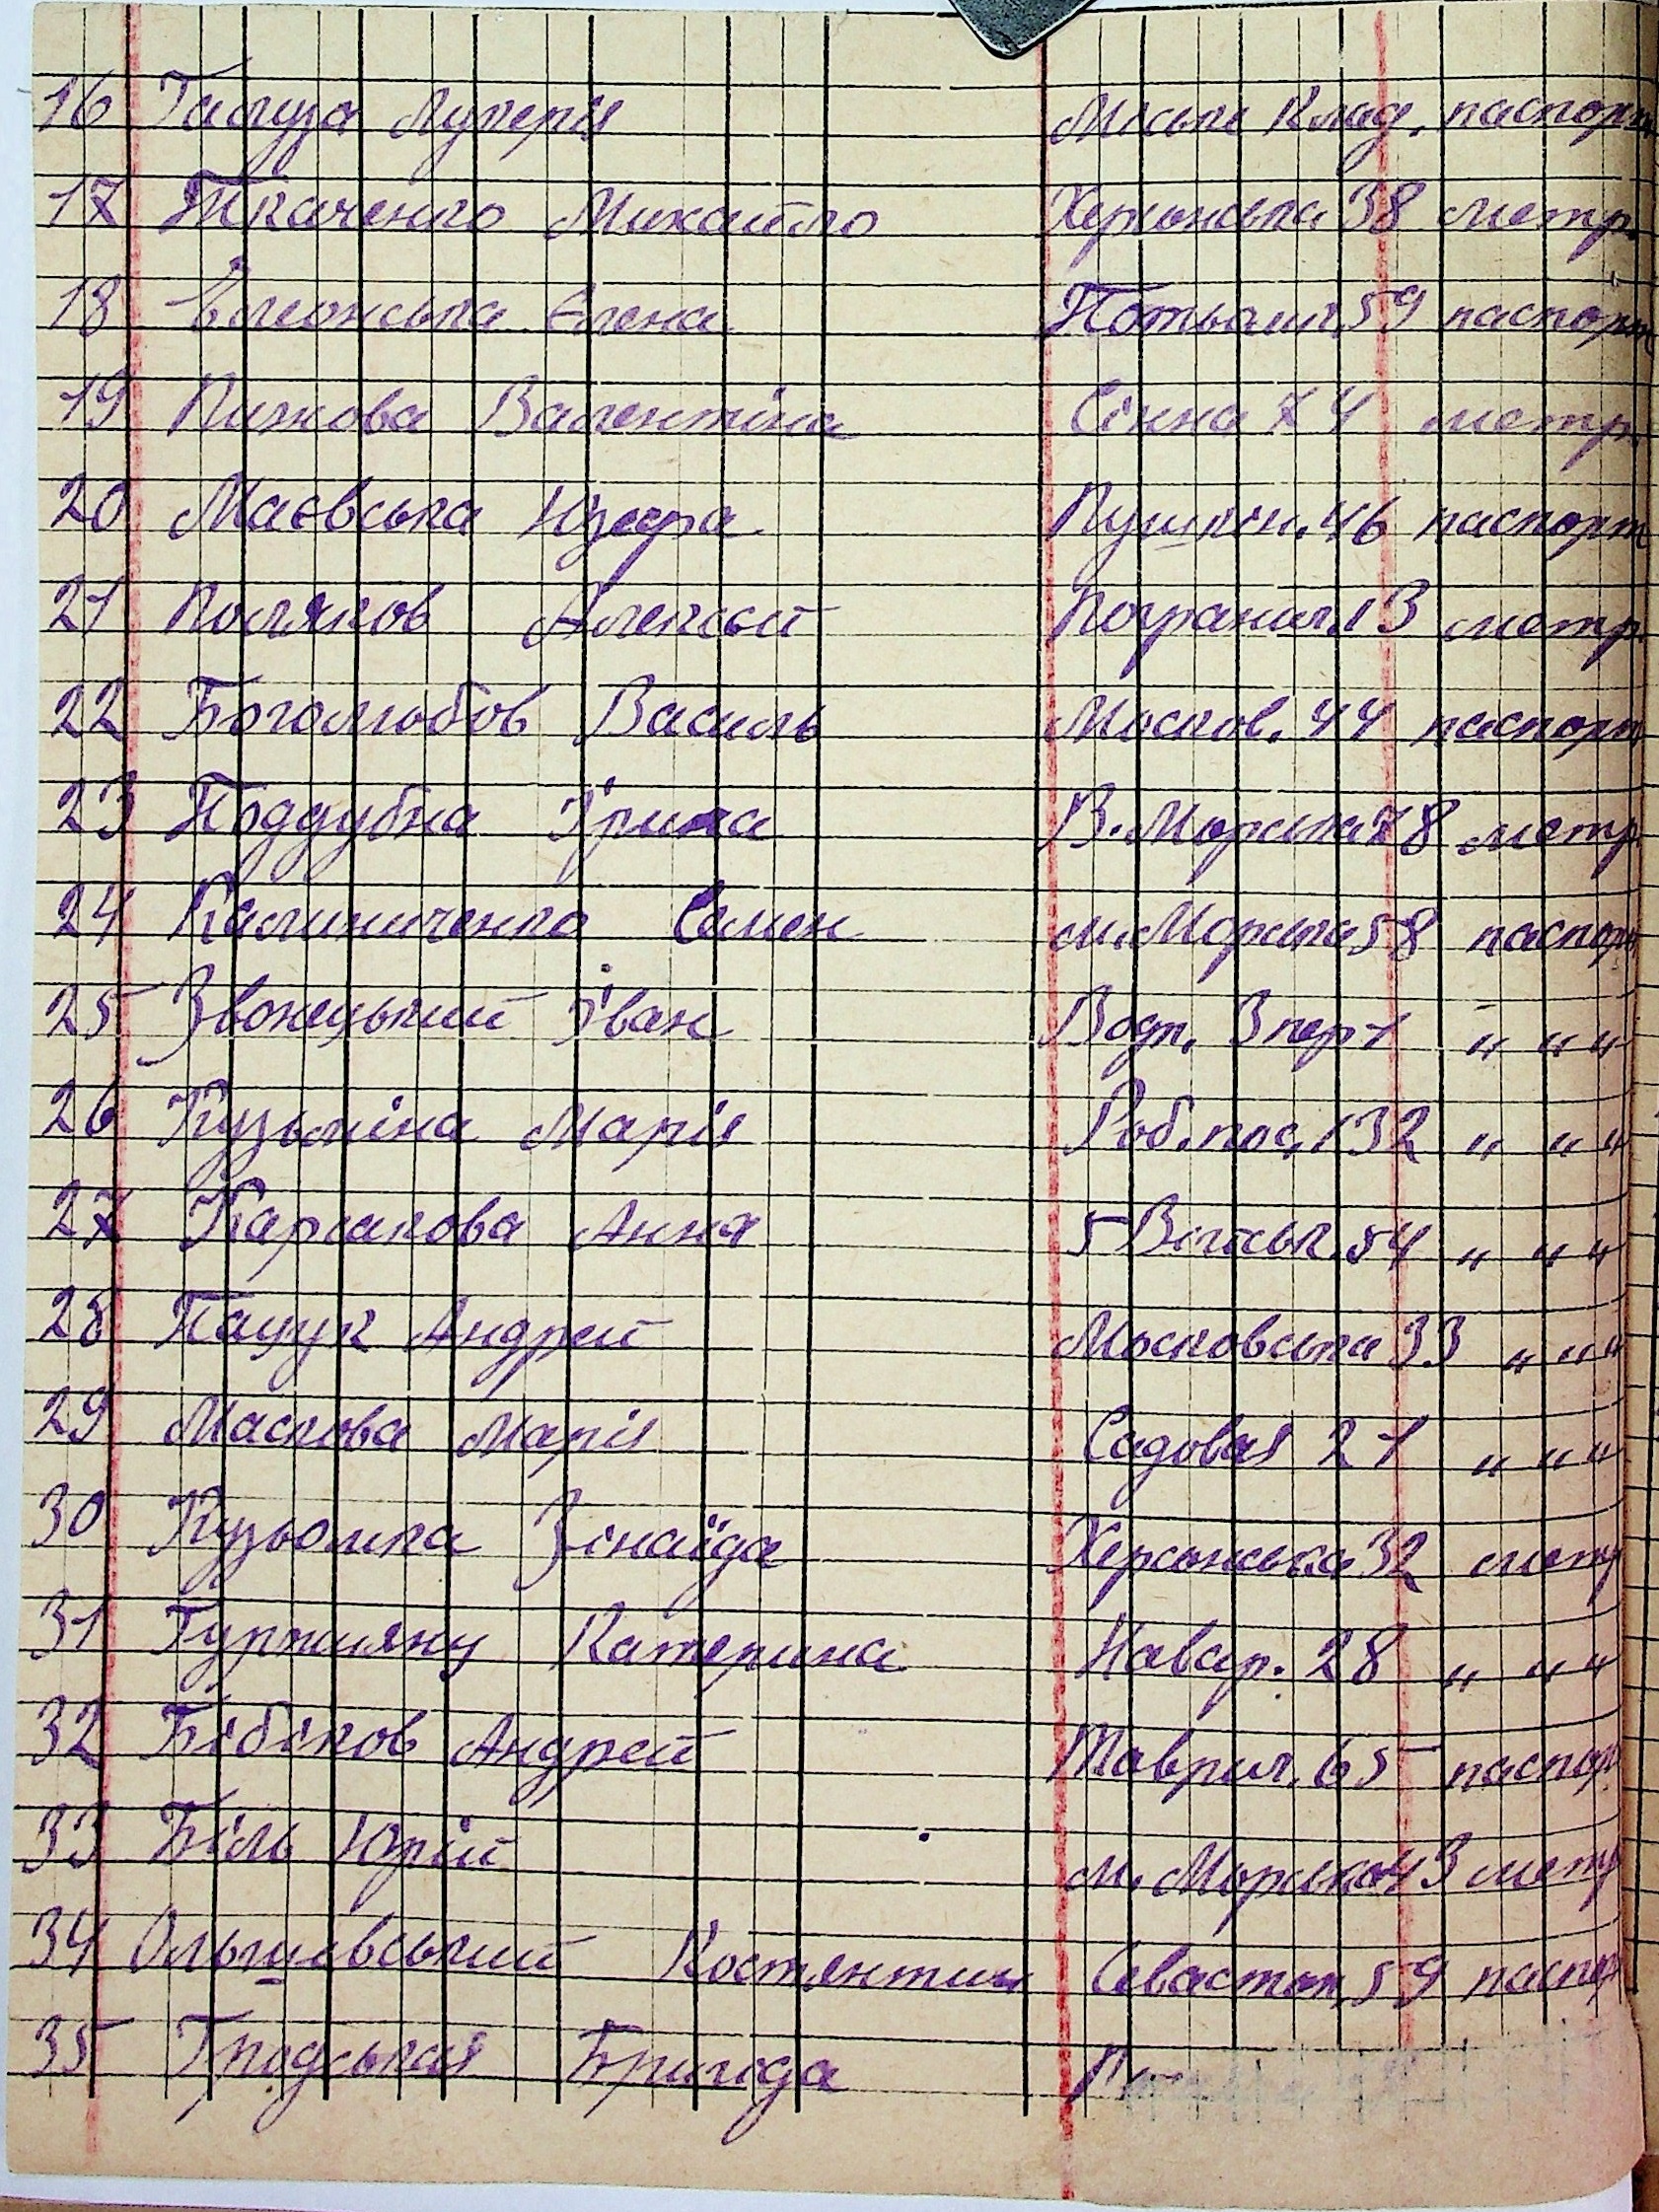 16 Галуза Лукерія Міське Клад. паспорт
17 Ткаченко Михайло Херсонська 38 метр.
18 Єлена 59 паспорт
19 Пижова Валентіна Сінна 74 метр.
20 Маєвська Юзефа Пушкін. 46 паспорт
21 Поляков Алексєй Погранич. 13 метр.
22 Боголюбов Василь Москов. 44 паспорт
23 Поддубна Ірина В. Морська 78 метр
24 Калиниченко Семен м. Морська 58 паспорт
25 Звонецький Іван Водп. 3 пер 1 " " "
26 Кузьміна Марія Роб. пос. 132 " " "
27 Карсакова Анна 5 Військ. 54 " " "
28 Пацук Андрей Московська 33 " " "
29 Маскова Марія Садовая 21 " " "
30 Кузьомка Зінаїда Херсонська 32 метр
31 Катерина Навар. 28 " " "
32 Бібіков Андрей Таврич. 65 паспор
33 Біль Юрій м. Морська 43 метр
34 Ольшевський Костянтин Севастоп. 59 паспор
35 Бригіда